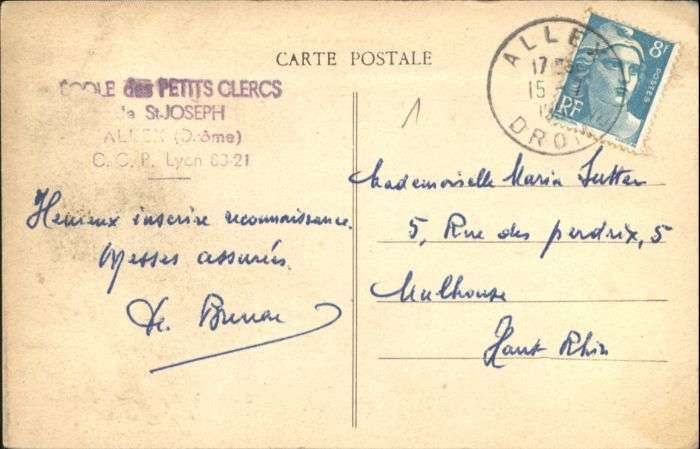 CARTE POSTALE
ÉCOLE des PETITS CLERCS
de St-JOSEPH
ALLEX (Drôme)
C. C. P. Lyon 83-21
Heureux inscrire reconnaissance.
Messes assurées.
1
ALLEX
15
DROME
8F
POSTES
RF
Mademoiselle Maria Sutter
5, Rue des perdrix, 5
Mulhouse
Haut Rhin